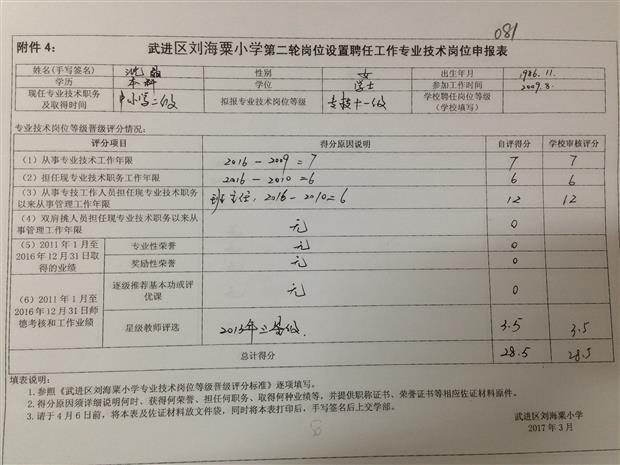 081
附件 4: 武进区刘海粟小学第二轮岗位设置聘任工作专业技术岗位申报表
姓名(手写签名) 性别 女 出生年月 1986.11.
学历 本科 学位 学士 参加工作时间 2009.8.
现任专业技术职务及取得时间 中小学二级 拟报专业技术岗位等级 专技十一级 学校聘任岗位等级(学校填写)
专业技术岗位等级晋级评分情况:
评分项目 得分原因说明 自评得分 学校审核评分
(1)从事专业技术工作年限 2016-2009=7 7 7
(2)担任现专业技术职务工作年限 2016-2010=6 6 6
(3)从事专技工作人员担任现专业技术职务以来从事管理工作年限 班主任,2016-2010=6 12 12
(4)双肩挑人员担任现专业技术职务以来从事管理工作年限 无 0
(5)2011 年 1 月至 2016 年 12 月 31 日取得的业绩 专业性荣誉 无 0
奖励性荣誉 无 0
(6)2011 年 1 月至 2016 年 12 月 31 日师德考核和工作业绩 逐级推荐基本功或评优课 无 0
星级教师评选 2013年三星级. 3.5 3.5
总计得分 28.5 28.5
填表说明:
1.参照《武进区刘海粟小学专业技术岗位等级晋级评分标准》逐项填写。
2.得分原因须详细说明何时、获得何荣誉、担任何职务、取得何种业绩等,并提供职称证书、荣誉证书等相应佐证材料原件。
3.请于 4 月 6 日前,将本表及佐证材料放文件袋,同时将本表打印后,手写签名后上交学部。
武进区刘海粟小学
2017 年 3 月